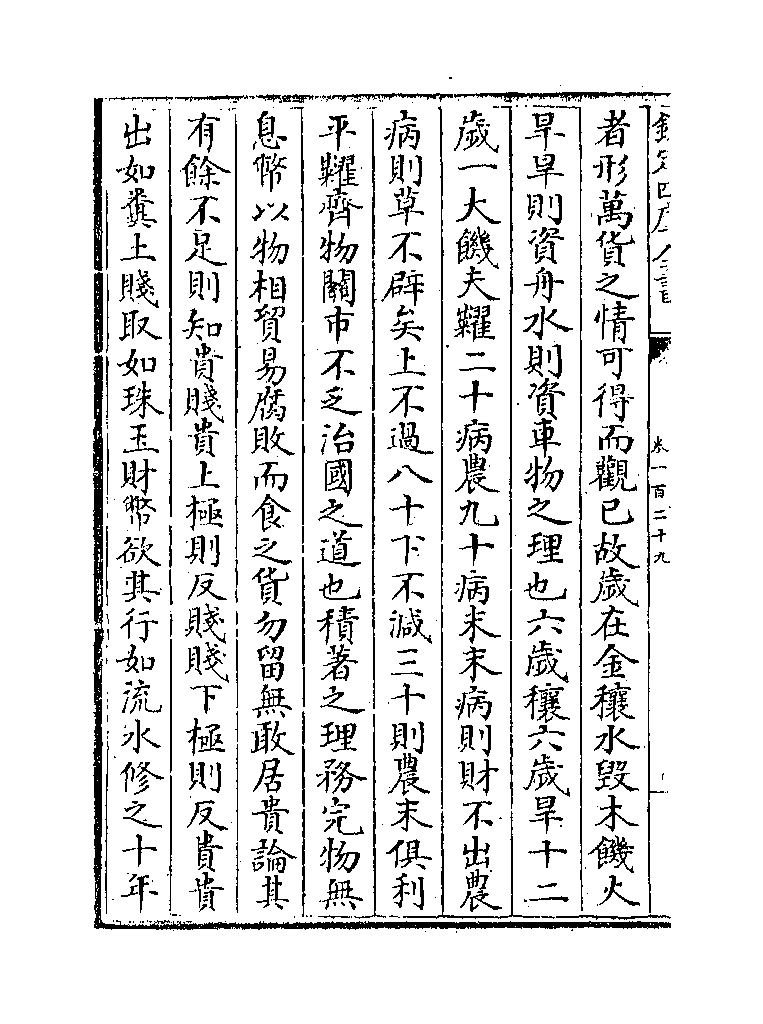 欽定四庫全書
卷一百二十九
者形萬貨之情可得而觀已故歲在金穰水毀木饑火
旱旱則資舟水則資車物之理也六歲穰六歲旱十二
歲一大饑夫糶二十病農九十病末末病則財不出農
病則草不辟矣上不過八十下不減三十則農末俱利
平糶齊物關市不乏治國之道也積著之理務完物無
息幣以物相貿易腐敗而食之貨勿留無敢居貴論其
有餘不足則知貴賤貴上極則反賤賤下極則反貴貴
出如糞土賤取如珠玉財幣欲其行如流水修之十年